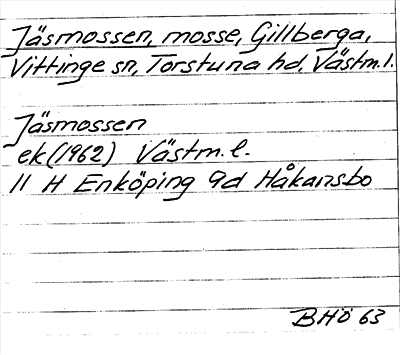 Jäsmossen, mosse, Gillberga,
Vittinge sn, Torstuna hd, Västm.l.
Jäsmossen
ek(1962) Västm.l.
11 H Enköping 9d Håkansbo
BHÖ 63